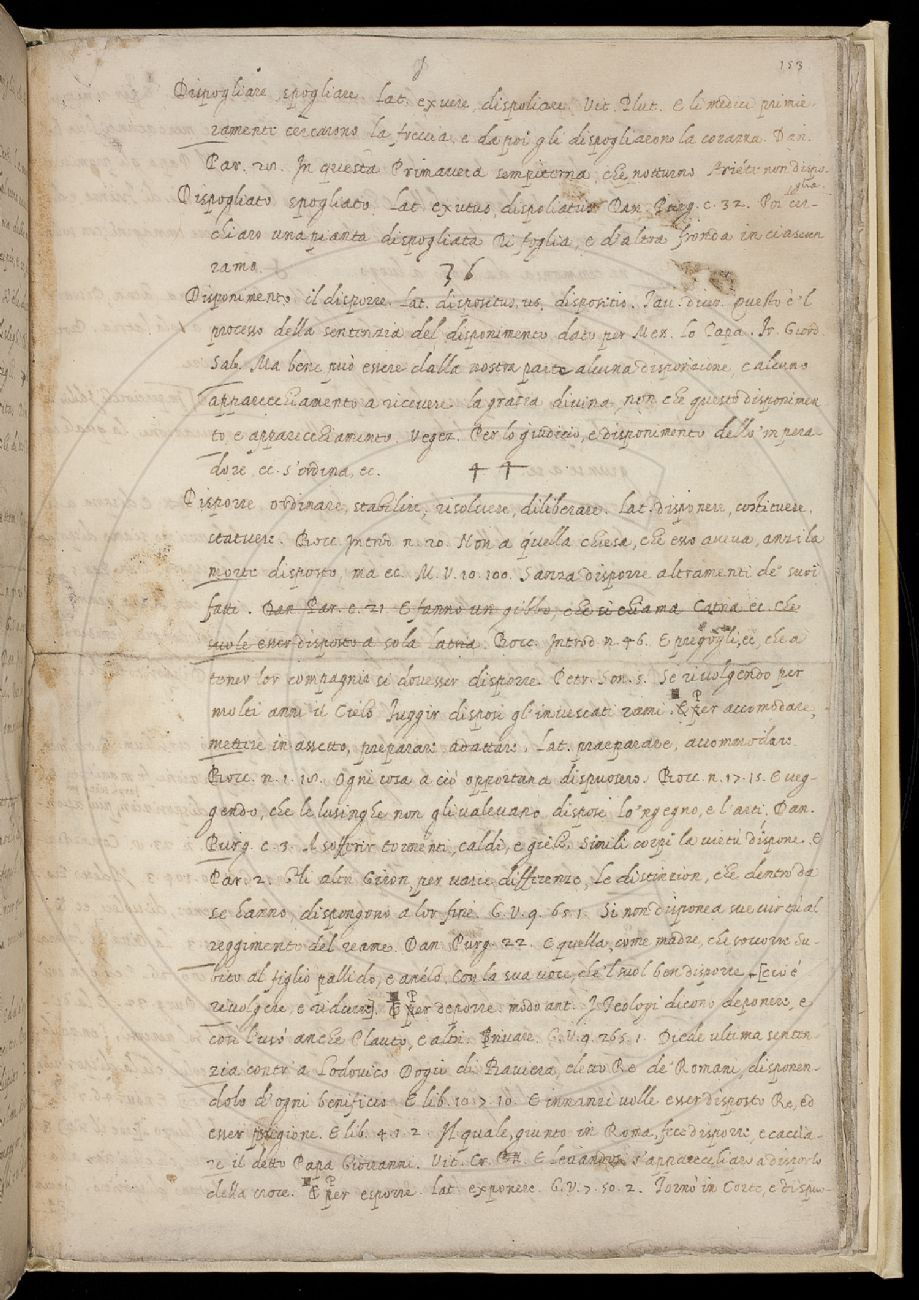 153
Dispogliare spogliare. Lat. exuere, dispoliare. Vit. Plut. E li medici primie-
ramente cercarono la freccia, e da poi gli dispogliarono la corazza. Dan.
Par. 28. In questa Primavera sempiterna, che notturno Ariete non dispo-
glia.
Dispogliato spogliato. Lat. exutus, dispoliatus. Dan. Purg. c. 32. Poi cer-
chiaro una pianta dispogliata Di foglia, e d'altra fronda in ciascun
ramo. 36
Disponimento il disporre. Lat. dispositus, us, dispositio. Questo è 'l
processo della sentenzia del disponimento dato per Mes. lo Papa. Fr. Giord.
Salv. Ma bene può essere dalla nostra parte alcuna disposizione, e alcuno
apparecchiamento a ricevere la grazia divina, non che questo disponimen
to, e apparecchiamento. Vegez. Per lo giudicio, e disponimento dello 'mpera-
dore, ec. s'ordina, ec.
Disporre ordinare, stabilire, risolvere, diliberare. Lat. disponere, costituere,
statuere. Bocc. Introd. n. 20. Non a quella chiesa, che esso aveva, anzi la
morte disposto, ma ec. M. V. 10. 100. Sanza disporre altramenti de' suoi
fatti. Dan Par. c. 21 E fanno un gibbo, che si chiama Catria ec. che
suole esser disposto a sola latria. Bocc. Introd. n. 46. E pregogli, ec, che a
tener lor compagnia si dovesser disporre. Petr. Son. 5. Se rivolgendo per
molti anni il Cielo Fuggir disposi gl' invescati rami. Per accomodare,
mettere in assetto, preparare adattare. Lat. praeparare, accommodare
Bocc. n. 1. 18. Ogni cosa a ciò opportuna dispuosero. Bocc. n. 17. 15. E veg-
gendo, che le lusinghe non gli valevano dispose lo 'ngegno, e l'arti. Dan.
Purg. c. 3. A sofferir tormenti, caldi, e gieli. Simili corpi la virtù dispone. E
Par. 2. Gli altri Giron, per varie differenze, Le distinzion, che dentro da
se hanno, dispongono a lor fini. G. V. 9. 65. 1. Si non disponea sue virtù al
reggimento del reame. Dan Purg. 22. E quella, come madre, che soccorre Su-
bito al figlio pallido, e anelo, Con la sua voce, che 'l suol ben disporre [cioè
rivolgere, e ridurre]. Per deporre. modo ant. I Teologi dicono deponere, e
così l'usò anche Plauto, e altri. Privare. G. V. 9. 265. 1. Diede ultima senten-
zia contr' a Lodovico Dogio di Baviera, eletto Re de' Romani, disponen-
dolo d'ogni beneficio E lib. 10. 7. 10. E innanzi volle esser disposto Re, ed
esser pregione. E lib. 4. 1. 2. Il quale, giunto in Roma, fece disporre, e caccia-
re il detto Papa Giovanni. Vit. Cr. E s'apparecchiaro a disporlo
della croce. Per esporre. Lat. exponere. G. V. 7. 50. 2. Tornò in Corte, e dispuo-